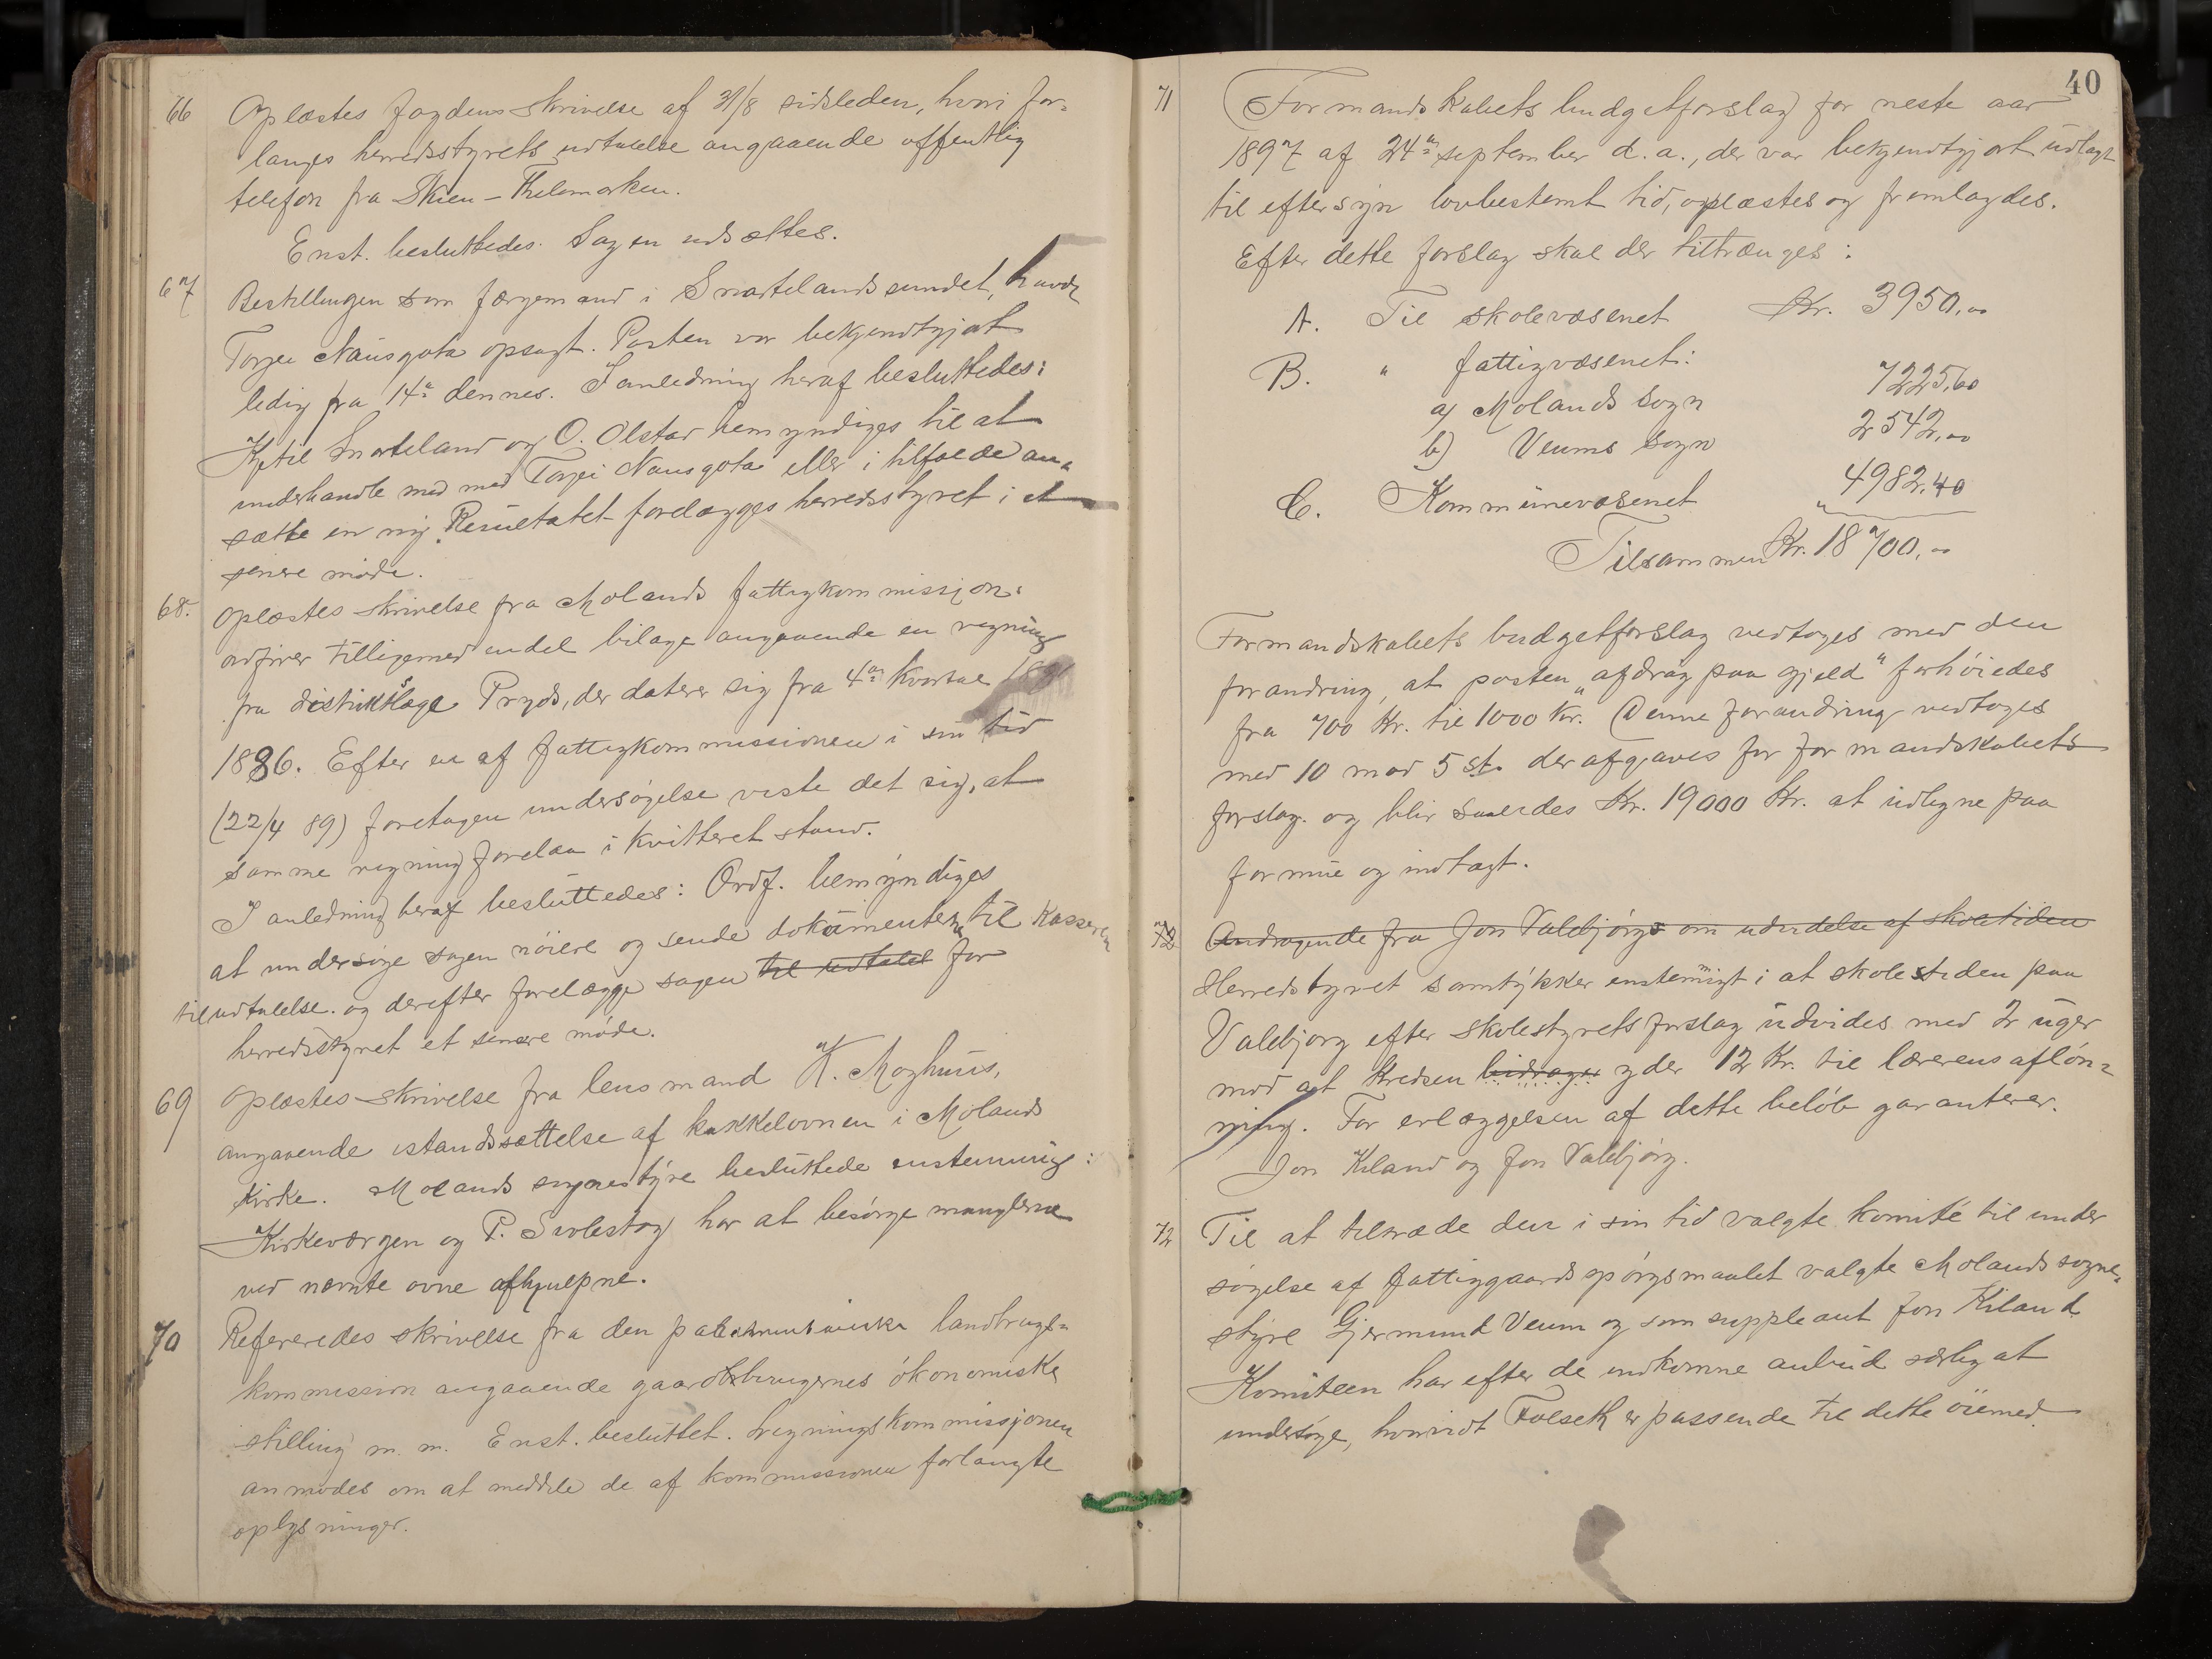 66 Oplæstes fogdens skrivelse af 31/8 sidstleden, hvori for-
langes herredsstyrets udtalelse angaaende offentlig
telefon fra Skien – Thelemarken.
Enst. besluttedes. Sagen udsættes.
67 Bestillingen som færgemand i Snartelandssundet, havde
Torjei Nausgota opsagt. Posten var bekjendtgjort
ledig fra 14de dennes. I anledning heraf besluttedes:
Kjetil Snarteland og O. Olstad bemyndiges til at
underhandle med med Torjei Nausgota eller i tilfælde an-
sætte en ny. Resultatet forelægges herredsstyret i et
senere møde.
68. Oplæstes skrivelse fra Molands fattigkommissjons
ordfører tilligemed endel bilage angaaende en regning
fra distriktslæge Pryds, der daterer sig fra 4de kvartal
1886. Efter en af fattigkommissionen i sin tid
(22/4 89) foretagen undersøgelse viste det sig, at
samme regning forelaa i kvitteret stand.
I anledning heraf besluttedes: Ordf. bemyndiges
at undersøge sagen nøiere og sende dokumenterne til kasseren
til udtalelse. og derefter forelægge sagen til udtalel for
herredsstyret et senere møde.
69 Oplæstes skrivelse fra lensmand K. Moghuus,
angaaende istandsættelse af kakkelovnen i Molands
kirke. Molands sognestyre besluttede enstemmig:
Kirkeværgen og P. Svolestog har at besørge manglerne
ved nævnte ovne afhjulpne.
70 Refereredes skrivelse fra den parlamentariske landbrugs-
kommission angaaende gaardbrugernes økonomiske
stilling m. m. Enst. besluttet. Ligningskommissjonen
anmodes om at meddele de af kommissionen forlangte
oplysninger.
40
71 Formandskabets budgetforslag for neste aar
1897 af 24de september d. a., der var bekjendtgjort udlagt
til eftersyn lovbestemt tid, oplæstes og fremlagdes.
Efter dette forslag skal der tiltrænges:
A. Til skolevæsenet Kr. 3950,00
B. " fattigvæsenet:
a) Molands sogn 7225,60
b) Veums sogn 2542,00
C. Kommunevæsenet " 4982,40
Tilsammen Kr. 18700,00
Formandskabets budgetforslag vedtoges med den
forandring, at posten "afdrag paa gjeld" forhøiedes
fra 700 Kr. til 1000 Kr. Denne forandring vedtoges
med 10 mod 5 st. der afgaves for formandskabets
forslag. og blir saaledes Kr. 19000 Kr. at udligne paa
formue og indtægt.
72 Andragende fra Jon Valebjørg om udvidelse af skoletiden
Herredstyret samtykker enstemmigt i at skolestiden paa
Valebjørg efter skolestyrets forslag udvides med 2 uger
mod at kredsen bidrager yder 12 Kr. til lærerens afløn-
ning. For erlæggelsen af dette beløb garanterer.
Jon Kiland og Jon Valebjørg.
72 Til at tiltræde den i sin tid valgte komité til under
søgelse af fattiggaardspørgsmaalet valgte Molands sogne-
styre Gjermund Veum og som suppleant Jon Kiland.
Komiteen har efter de indkomne anbud særlig at
undersøge, hvorvidt Folseth er passende til dette øiemed.